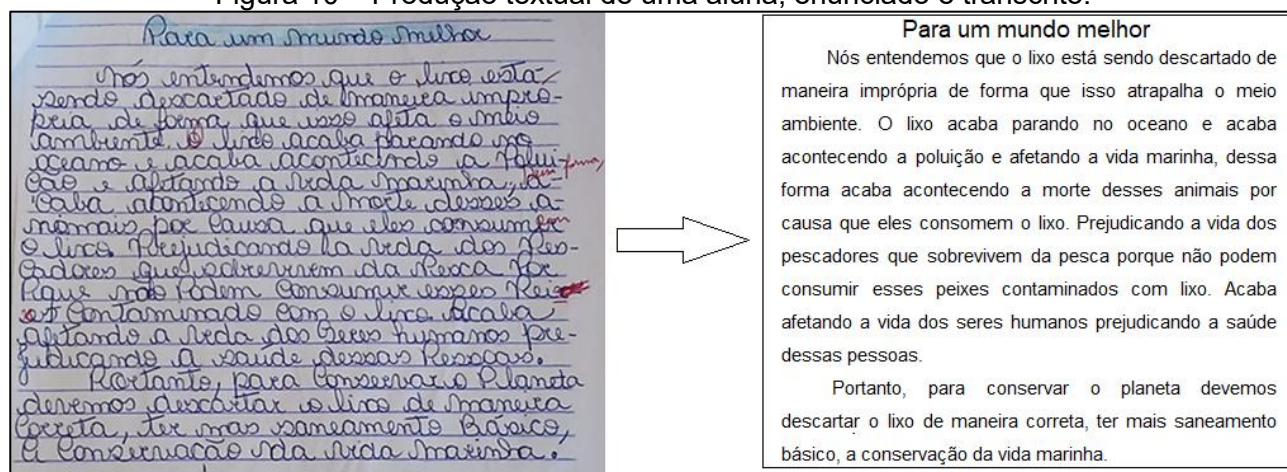 Figura 10 – Produção textual de uma aluna, enunciado e transcrito.
Para um mundo melhor
Nós entendemos que o lixo está
sendo descartado de maneira impró-
pria de forma que isso afeta o meio
ambiente. O lixo acaba parando no
oceano e acaba acontecindo a Polui-
ção e afetando a vida marinha, a-
dessa forma,
caba aconticendo a morte desses a-
nimais por causa que eles consumem
o lixo Prejudicando la vida dos Pes-
cadores que sobrevivem da Pesca Por
que não Podem consumir esses Pei
contaminado com o lixo Acaba
afetando a vida dos Seres humanos pre-
judicando a saúde dessas Pessoas.
Portanto, para conservar o Planeta
devemos descartar o lixo de maneira
correta, ter mas saneamento Básico,
a conservação da vida marinha.
Para um mundo melhor
Nós entendemos que o lixo está sendo descartado de
maneira imprópria de forma que isso atrapalha o meio
ambiente. O lixo acaba parando no oceano e acaba
acontecendo a poluição e afetando a vida marinha, dessa
forma acaba acontecendo a morte desses animais por
causa que eles consomem o lixo. Prejudicando a vida dos
pescadores que sobrevivem da pesca porque não podem
consumir esses peixes contaminados com lixo. Acaba
afetando a vida dos seres humanos prejudicando a saúde
dessas pessoas.
Portanto, para conservar o planeta devemos
descartar o lixo de maneira correta, ter mais saneamento
básico, a conservação da vida marinha.